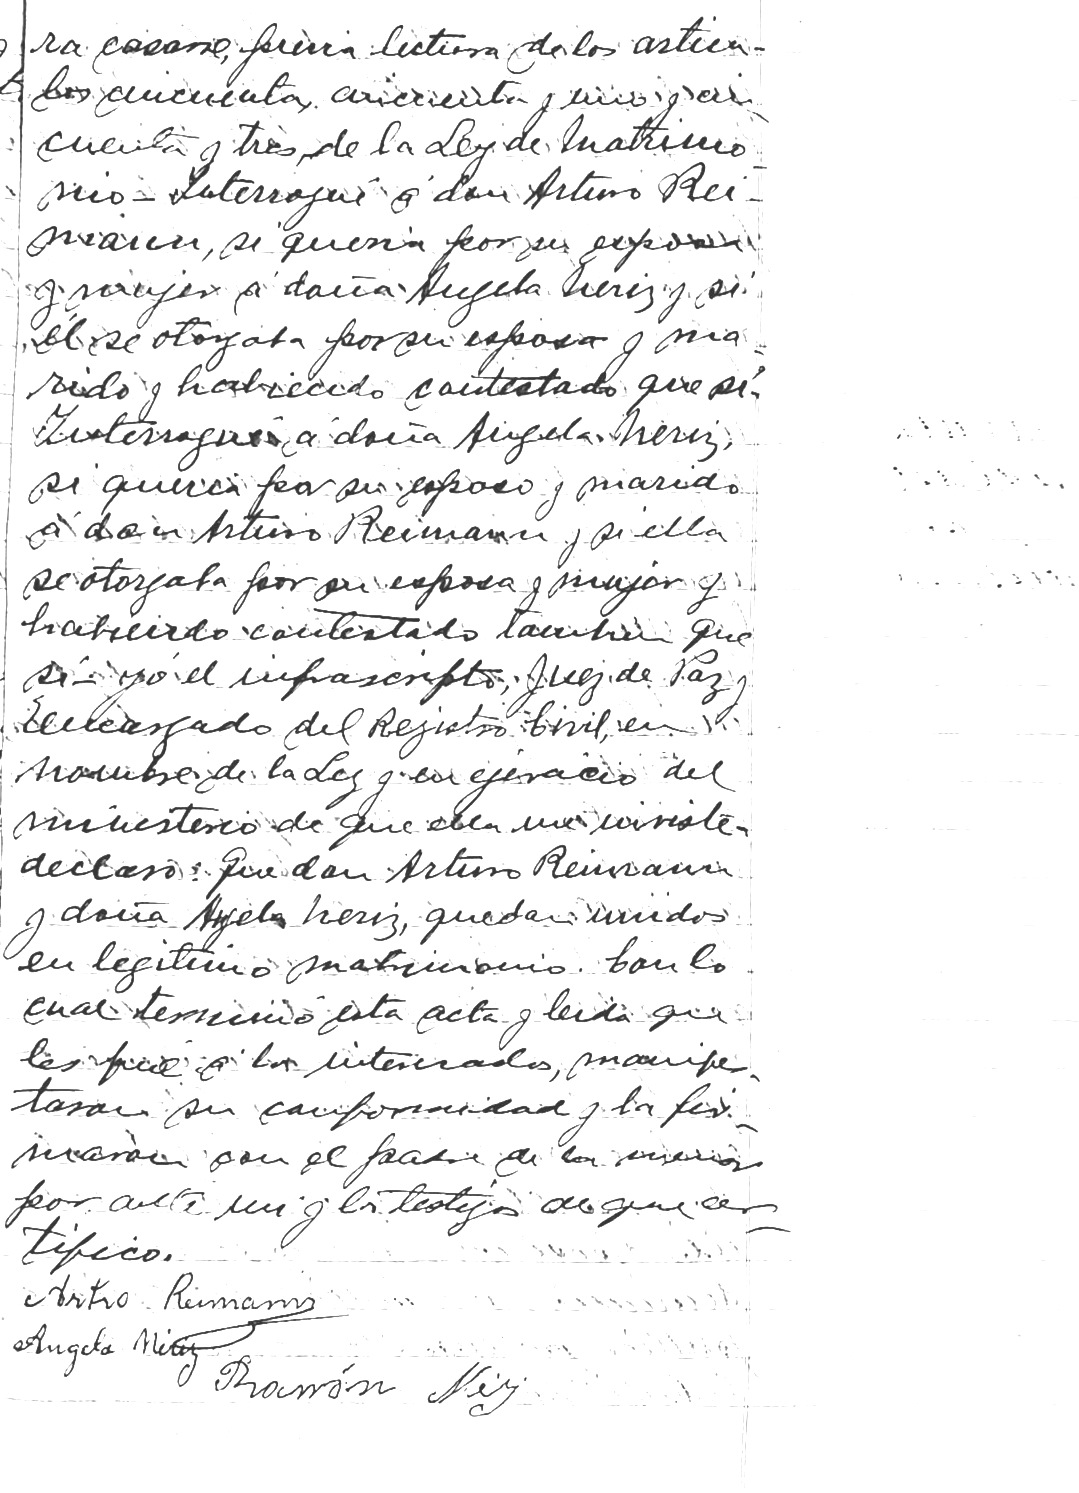 ra casarse, previa lectura de los articu-
los cincuenta, cincuenta y uno y cin
cuenta y tres, de la Ley de Matrimo
nio - Interrogué á don Arturo Rei-
mann, si queria por su esposa
y mujer á doña Angela Neriz y si
él se otorgaba por su esposo y ma-
rido y habiendo contestado que sí-
Interrogué, á doña Angela Neriz,
si queria por su esposo y marido
á don Arturo Reimann y si ella
se otorgaba por su esposa y mujer y
habiendo contestado tambien que
sí- yó el infrascripto, Juez de Paz y
Encargado del Registro Civil, en
nombre de la Ley y en ejercicio del
ministerio de que ella me inviste-
declaro: Que don Arturo Reimann
y doña Angela Neriz, quedan unidos
en legitimo matrimonio. Con lo
cual terminó esta acta y leida que
les fué á los interesados, manifes-
taron su conformidad y la fir-
maron con el padre de la menor
por ante mi y los testigos de que cer-
tifico.
Artro Reimann
Angela Neriz
Ramón